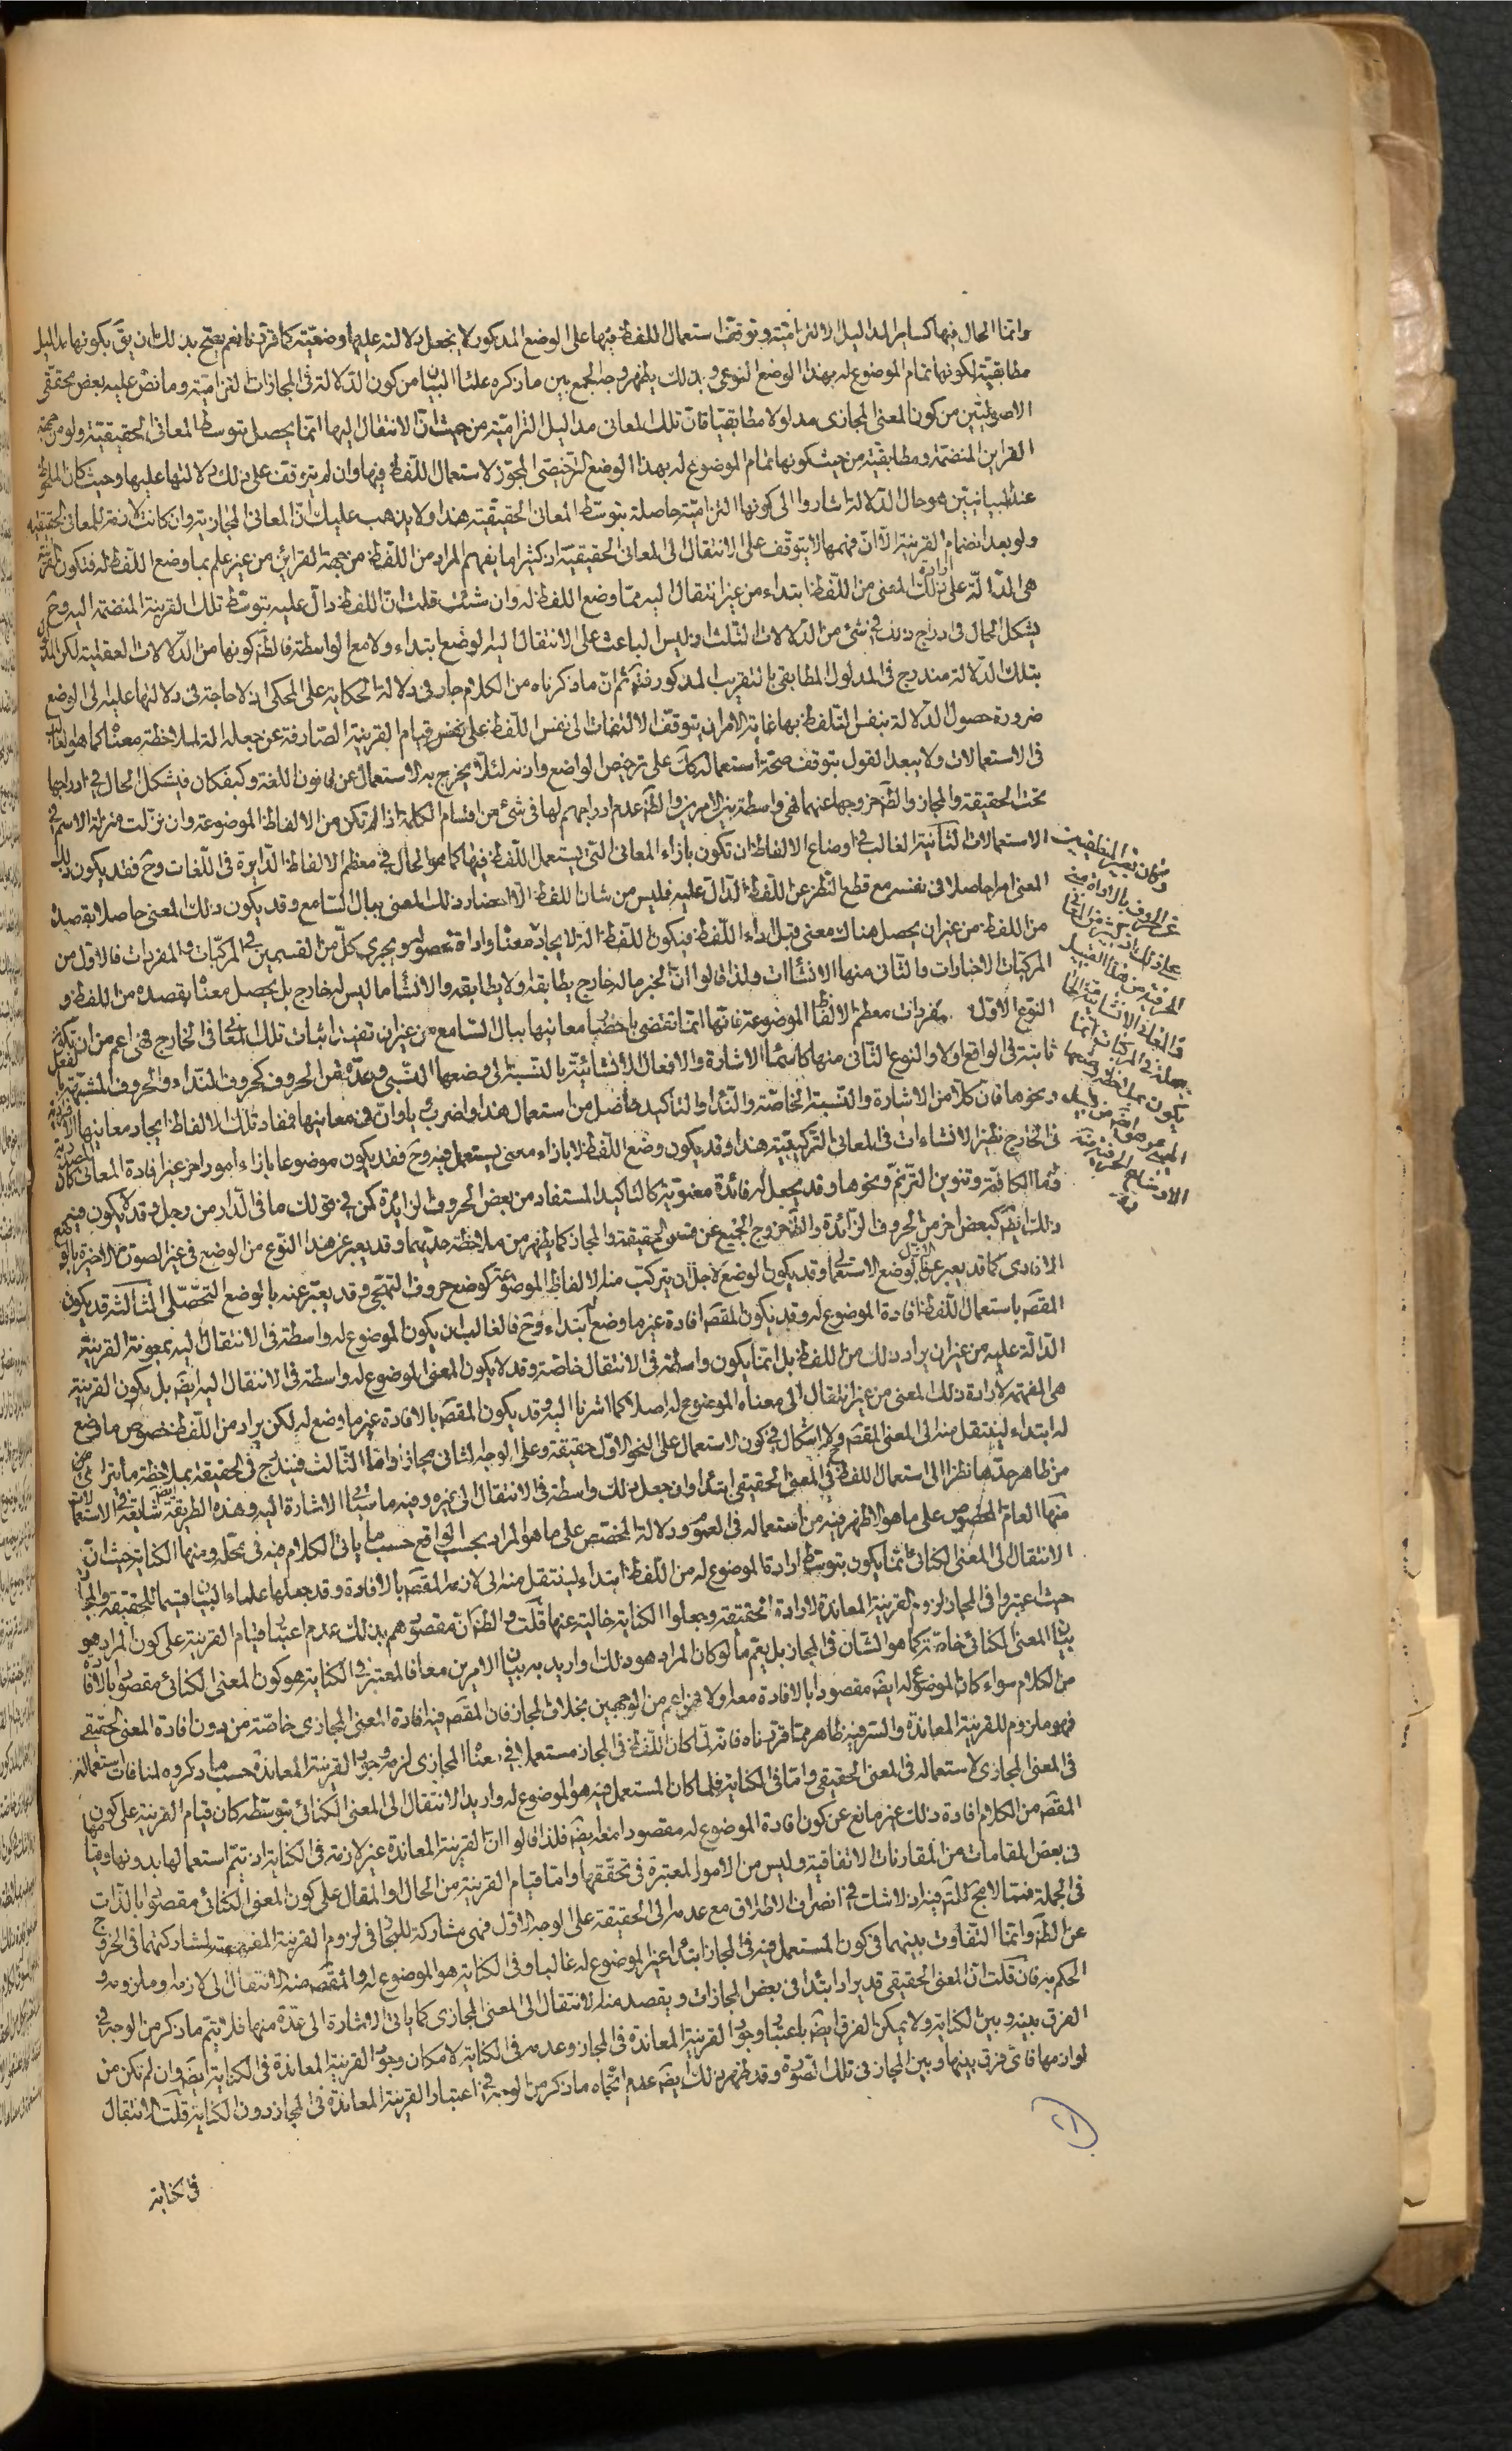 وانما الحال فيها كساير المداليل الالتزامية وتوقف استعمال اللفظ فيها على الوضع المذكور لا يجعل دلالته عليها وضعية كما قررنا نعم يصح بذلك ان يق بكونها مداليل
مطابقية لكونها تمام الموضوع له بهذا الوضع النوعي وبذلك يظهر وجه الجمع بين ما ذكره علماء البيان من كون الدلالة في المجازات التزامية وما نص عليه بعض محققي
الاصوليين من كون المعنى المجازي مدلولا مطابقيا فان تلك المعاني مداليل التزامية من حيث ان الانتقال اليها انما يحصل بتوسط المعاني الحقيقية ولو من جهة
القراين المنضمة ومطابقية من حيث كونها تمام الموضوع له بهذا الوضع الترخيصي المجوز لاستعمال اللفظ فيها وان لم يتوقف على ذلك دلالتها عليها وحيث كان الملحوظ
عند البيانيين هو حال الدلالة اشاروا الى كونها التزامية حاصلة بتوسط المعاني الحقيقية هذا ولا يذهب عليك ان المعاني المجازية وان كانت لازمة للمعاني الحقيقية
ولو بعد انضمام القرينة الا ان فهمها لا يتوقف على الانتقال الى المعاني الحقيقية اذ كثيرا ما يفهم المراد من اللفظ من جهة القرائن من غير علم بما وضع اللفظ له فتكون القرينة
هي الدالة على ارادة ذلك المعنى من اللفظ ابتداء من غير انتقال اليه مما وضع اللفظ له وان شئت قلت ان اللفظ دال عليه بتوسط تلك القرينة المنضمة اليه وح
يشكل الحال في ادراج ذلك في شئ من الدلالات الثلث اذ ليس الباعث على الانتقال اليه الوضع ابتداء ولا مع الواسطة فالظ كونها من الدلالات العقلية لكن المدلول
بتلك الدلالة مندرج في المدلول المطابقي بالتقريب المذكور فتم ثم ان ما ذكرناه من الكلام جار في دلالة الحكاية على المحكي اذ لا حاجة في دلالتها عليه الى الوضع
ضرورة حصول الدلالة بنفس التلفظ بها غاية الامر ان يتوقف الالتفات الى نفس اللفظ على نحو قيام القرينة الصارفة عن جعله الة لملاحظة معناه كما هو الغالب
في الاستعمالات ولا يبعد القول بتوقف صحة استعماله كك على ترخيص الواضع واذنه لئلا يخرج به الاستعمال عن قانون اللغة وكيف كان فيشكل الحال في ادراجها
تحت الحقيقة والمجاز والظ خروجها عنهما فهي واسطة بين الامرين والظ عدم ادراجهم لها في شئ من اقسام الكلمة اذا لم تكن من الالفاظ الموضوعة وان نزلت منزلة الاسم في
الاستعمالات الثانية الغالب في اوضاع الالفاظ ان تكون بازاء المعاني التي يستعمل اللفظ فيها كما هو الحال في معظم الالفاظ الدايرة في اللغات وح فقد يكون ذلك
المعنى امرا حاصلا في نفسه مع قطع النظر عن اللفظ الدال عليه فليس من شان اللفظ الا احضار ذلك المعنى ببال السامع وقد يكون ذلك المعنى حاصلا بقصده
من اللفظ من غير ان يحصل هناك معنى قبل اداء اللفظ فيكون اللفظ الة لايجاد معناه واداة لحصوله ويجري كل من القسمين في المركبات والمفردات فالاول من
المركبات الاخبارات والثاني منها الانشاات ولذا قالوا ان الخبر ماله خارج يطابقه او لا يطابقه والانشاء ما ليس له خارج بل يحصل معناه بقصده من اللفظ و
النوع الاول من المفردات معظم الالفاظ الموضوعة فانها انما تقضي باحضار معانيها ببال السامع من غير ان تفيد اثبات تلك المعاني في الخارج فهي اعم من ان تكون
ثابتة في الواقع اولا والنوع الثاني منها كاسماء الاشارة والافعال الانشائية بالنسبة الى وضعها النسبي وعدة من الحروف كحروف النداء والحروف المشبهة بالفعل
ونحوها فان كلا من الاشارة والنسبة الخاصة والنداء والتاكيد حاصل من استعمال هذا واضرب ويا وان في معانيها فمفاد تلك الالفاظ ايجاد معانيها الافرادية
في الخارج نظير الانشاءات في المعاني التركيبية هذا وقد يكون وضع اللفظ لا بازاء معنى يستعمل فيه وح فقد يكون موضوعا بازاء امور اخر غير افادة المعاني كما
في ما الكافة وتنوين الترنم ونحوها وقد يجعل له فائدة معنوية كالتاكيد المستفاد من بعض الحروف الزايدة كمن في قولك ما في الدار من رجل وقد لا يكون فيه
ذلك ايضا كبعض اخر من الحروف الزائدة والظ خروج الجميع عن قسمي الحقيقة والمجاز كما يظهر من ملاحظة حديهما وقد يعبر عن هذا النوع من الوضع في غير الصورة الاخيرة بالوضع
الافادي كما قد يعبر عن الاول بالوضع الاستعمالي وقد يكون الوضع لاجل ان يتركب منه الالفاظ الموضوعة كوضع حروف التهجي وقد يعبر عنه بالوضع التحصلي الثالثة قد يكون
المقصد باستعمال اللفظ افادة الموضوع له وقد يكون المقصد افادة غير ما وضع له ابتداء وح فالغالب ان يكون الموضوع له واسطة في الانتقال اليه بمعونة القرينة
الدالة عليه من غير ان يراد ذلك من اللفظ بل انما يكون واسطة في الانتقال خاصة وقد لا يكون المعنى الموضوع له واسطة في الانتقال اليه ايضا بل يكون القرينة
هي المفهمة لارادة ذلك المعنى من غير انتقال الى معناه الموضوع له اصلا كما اشرنا اليه وقد يكون المقصد بالافادة غير ما وضع له لكن يراد من اللفظ خصوص ما وضع
له ابتداء لينتقل منه الى المعنى المقصد ولا اشكال في كون الاستعمال على النحو الاول حقيقة وعلى الوجه الثاني مجازا واما الثالث فيندرج في الحقيقة بملاحظة ما يتراءى
من ظاهر حدها نظرا الى استعمال اللفظ في المعنى الحقيقي ابتداء وان جعل ذلك واسطة في الانتقال الى غيره وفيه ما سيأتي الاشارة اليه وهذه الطريقة شايعة في الاستعمالات
منها العام المخصوص على ما هو الاظهر فيه من استعماله في العموم ودلالة المخصص على ما هو المراد بحسب الواقع حسب ما ياتي الكلام فيه في محله ومنها الكناية حيث ان
الانتقال الى المعنى الكنائي انما يكون بتوسط ارادة الموضوع له من اللفظ ابتداء لينتقل منه الى لازمه المقصد بالافادة وقد جعلها علماء البيان قسيما للحقيقة والمجاز
حيث اعتبروا في المجاز لزوم القرينة المعاندة لارادة الحقيقة وجعلوا الكناية خالية عنها قلت والظ ان مقصودهم بذلك عدم اعتبار قيام القرينة على كون المراد هو
بيان المعنى الكنائي خاصة كما هو الشان في المجاز بل يعم ما لو كان المراد هو ذلك او اريد به بيان الامرين معا فالمعتبر في الكناية هو كون المعنى الكنائي مقصودا بالافادة
من الكلام سواء كان الموضوع له ايضا مقصودا بالافادة معه اولا فهي اعم من الوجهين بخلاف المجاز فان المقصد فيه افادة المعنى المجازي خاصة من دون افادة المعنى الحقيقي
فهو ملزوم للقرينة المعاندة والسر فيه ظاهر مما قررناه فانه لما كان اللفظ في المجاز مستعملا في معناه المجازي لزم وجود القرينة المعاندة حسب ما ذكروه لمنافات استعماله
في المعنى المجازي لاستعماله في المعنى الحقيقي واما في الكناية فلما كان المستعمل فيه هو الموضوع له واريد الانتقال الى المعنى الكنائي بتوسطه كان قيام القرينة على كون
المقصد من الكلام افادة ذلك غير مانع عن كون افادة الموضوع له مقصودا معه ايضا فلذا قالوا ان القرينة المعاندة غير لازمة في الكناية اذ يتم استعمالها بدونها وقيامها
في بعض المقامات من المقارنات الاتفاقية وليس من الامور المعتبرة في تحققها واما قيام القرينة من الحال او المقال على كون المعنى الكنائي مقصودا بالذات
في الجملة فمما لا مجال للتامل فيه اذ لا شك في انصراف الاطلاق مع عدمه الى الحقيقة على الوجه الاول فهي مشاركة للمجاز في لزوم القرينة المفهمة لمشاركتهما في الخروج
عن الظ وانما التفاوت بينهما في كون المستعمل فيه في المجاز ابتداء غير الموضوع له غالبا وفي الكناية هو الموضوع له والمقصد منه الانتقال الى لازمه او ملزومه و
الحكم به فان قلت ان المعنى الحقيقي قد يراد ابتداء في بعض المجازات ويقصد منه الانتقال الى المعنى المجازي كما ياتي الاشارة الى عدة منها فلا يتم ما ذكر من الوجه في
الفرق بينه وبين الكناية ولا يمكن الفرق ايضا باعتبار وجود القرينة المعاندة في المجاز وعدمه في الكناية لامكان وجود القرينة المعاندة في الكناية ايضا وان لم تكن من
لوازمها فاي فرق بينها وبين المجاز في تلك الصورة وقد ظهر بذلك ايضا عدم اتجاه ما ذكر من الوجه في اعتبار القرينة المعاندة في المجاز دون الكناية قلت الانتقال
في الكناية